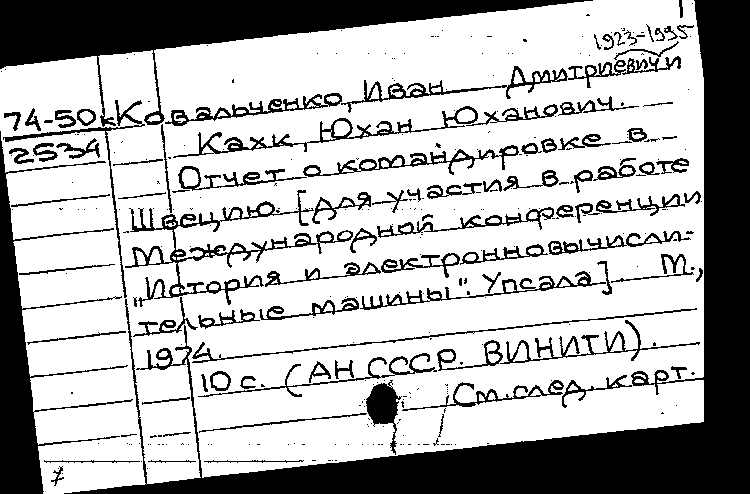 1923-1995
74-50к Ковальченко, Иван Дмитриевич и
2534 Кахк, Юхан Юханович.
Отчет о командировке в
Швецию. [Для участия в работе
Международной конференции
"История и электронновычисли-
тельные машины". Упсала] М.,
1974.
10 с. (АН СССР. ВИНИТИ).
См. след. карт.